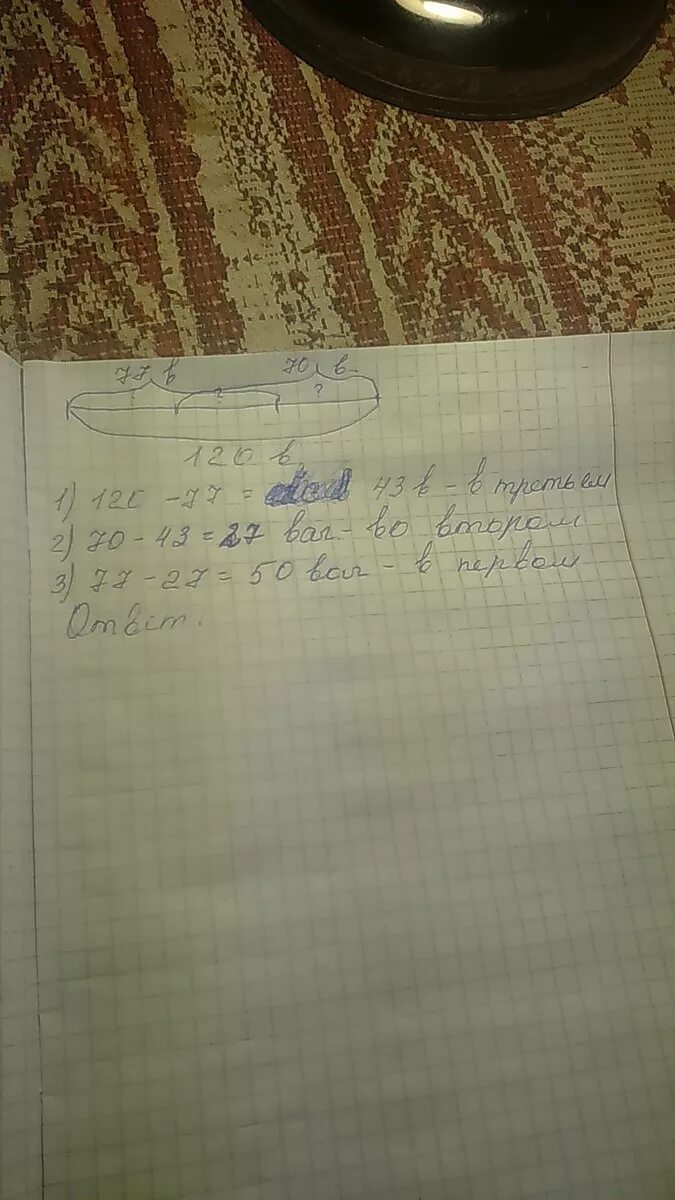 77 в 70 в.
? ? ?
120 в
1) 120 - 77 = 43 в - в третьем
2) 70 - 43 = 27 ваг. - во втором
3) 77 - 27 = 50 ваг - в первом
Ответ.